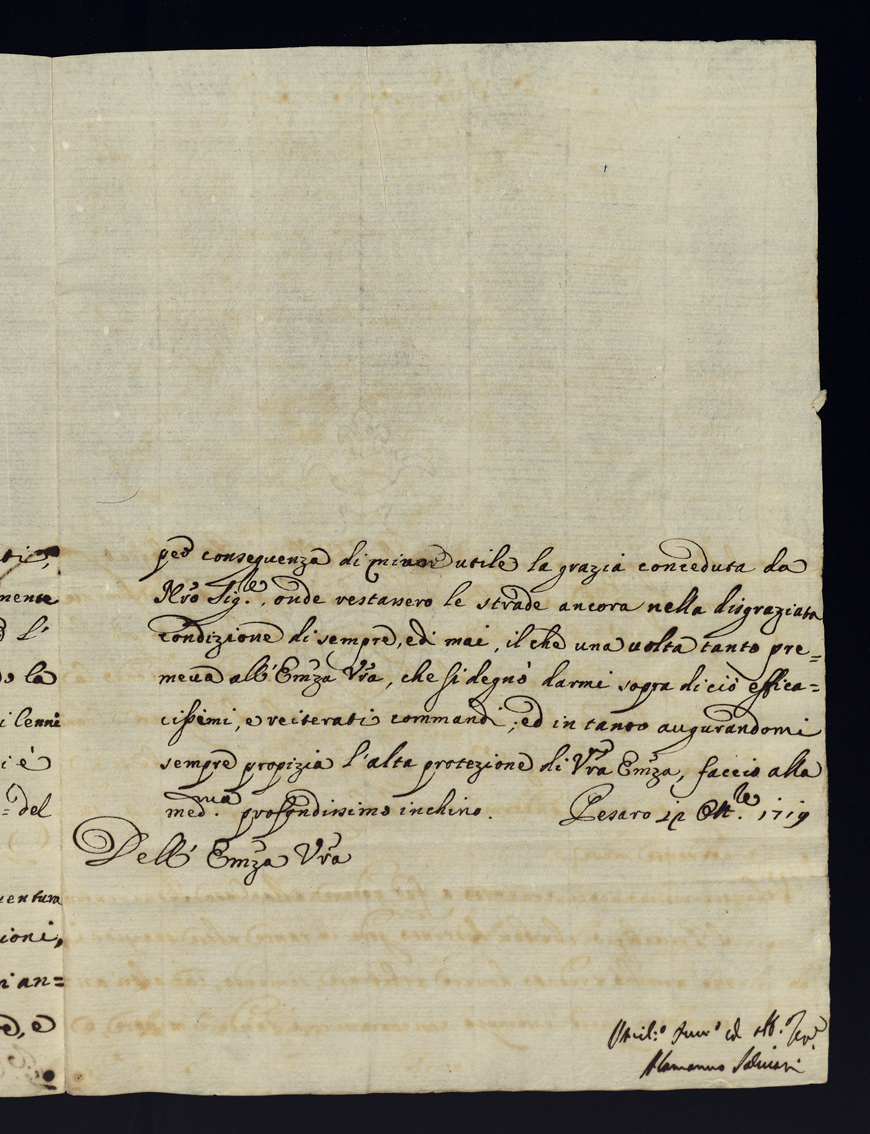 nente
l'
la
i Cenni
i è
del
ventura
ioni,
i an=
e
per conseguenza di minor utile la grazia conceduta da
Nrõ Sig.re, onde restassero le strade ancora nella disgraziata
condizione di sempre, e di mai, il che una volta tanto pre=
meva all'Emza Vrã, che si degnò darmi sopra di ciò effica=
cissimi, e reiterati commandi; ed in tanto augurandomi
sempre propizia l'alta protezione di Vrã Emza, faccio alla
med.ma profondissimo inchino. Pesaro 12 Ott.re 1719
Dell'Emza Vrã
Umil.o Serv.o ed obb.o
Alamanno Salviati